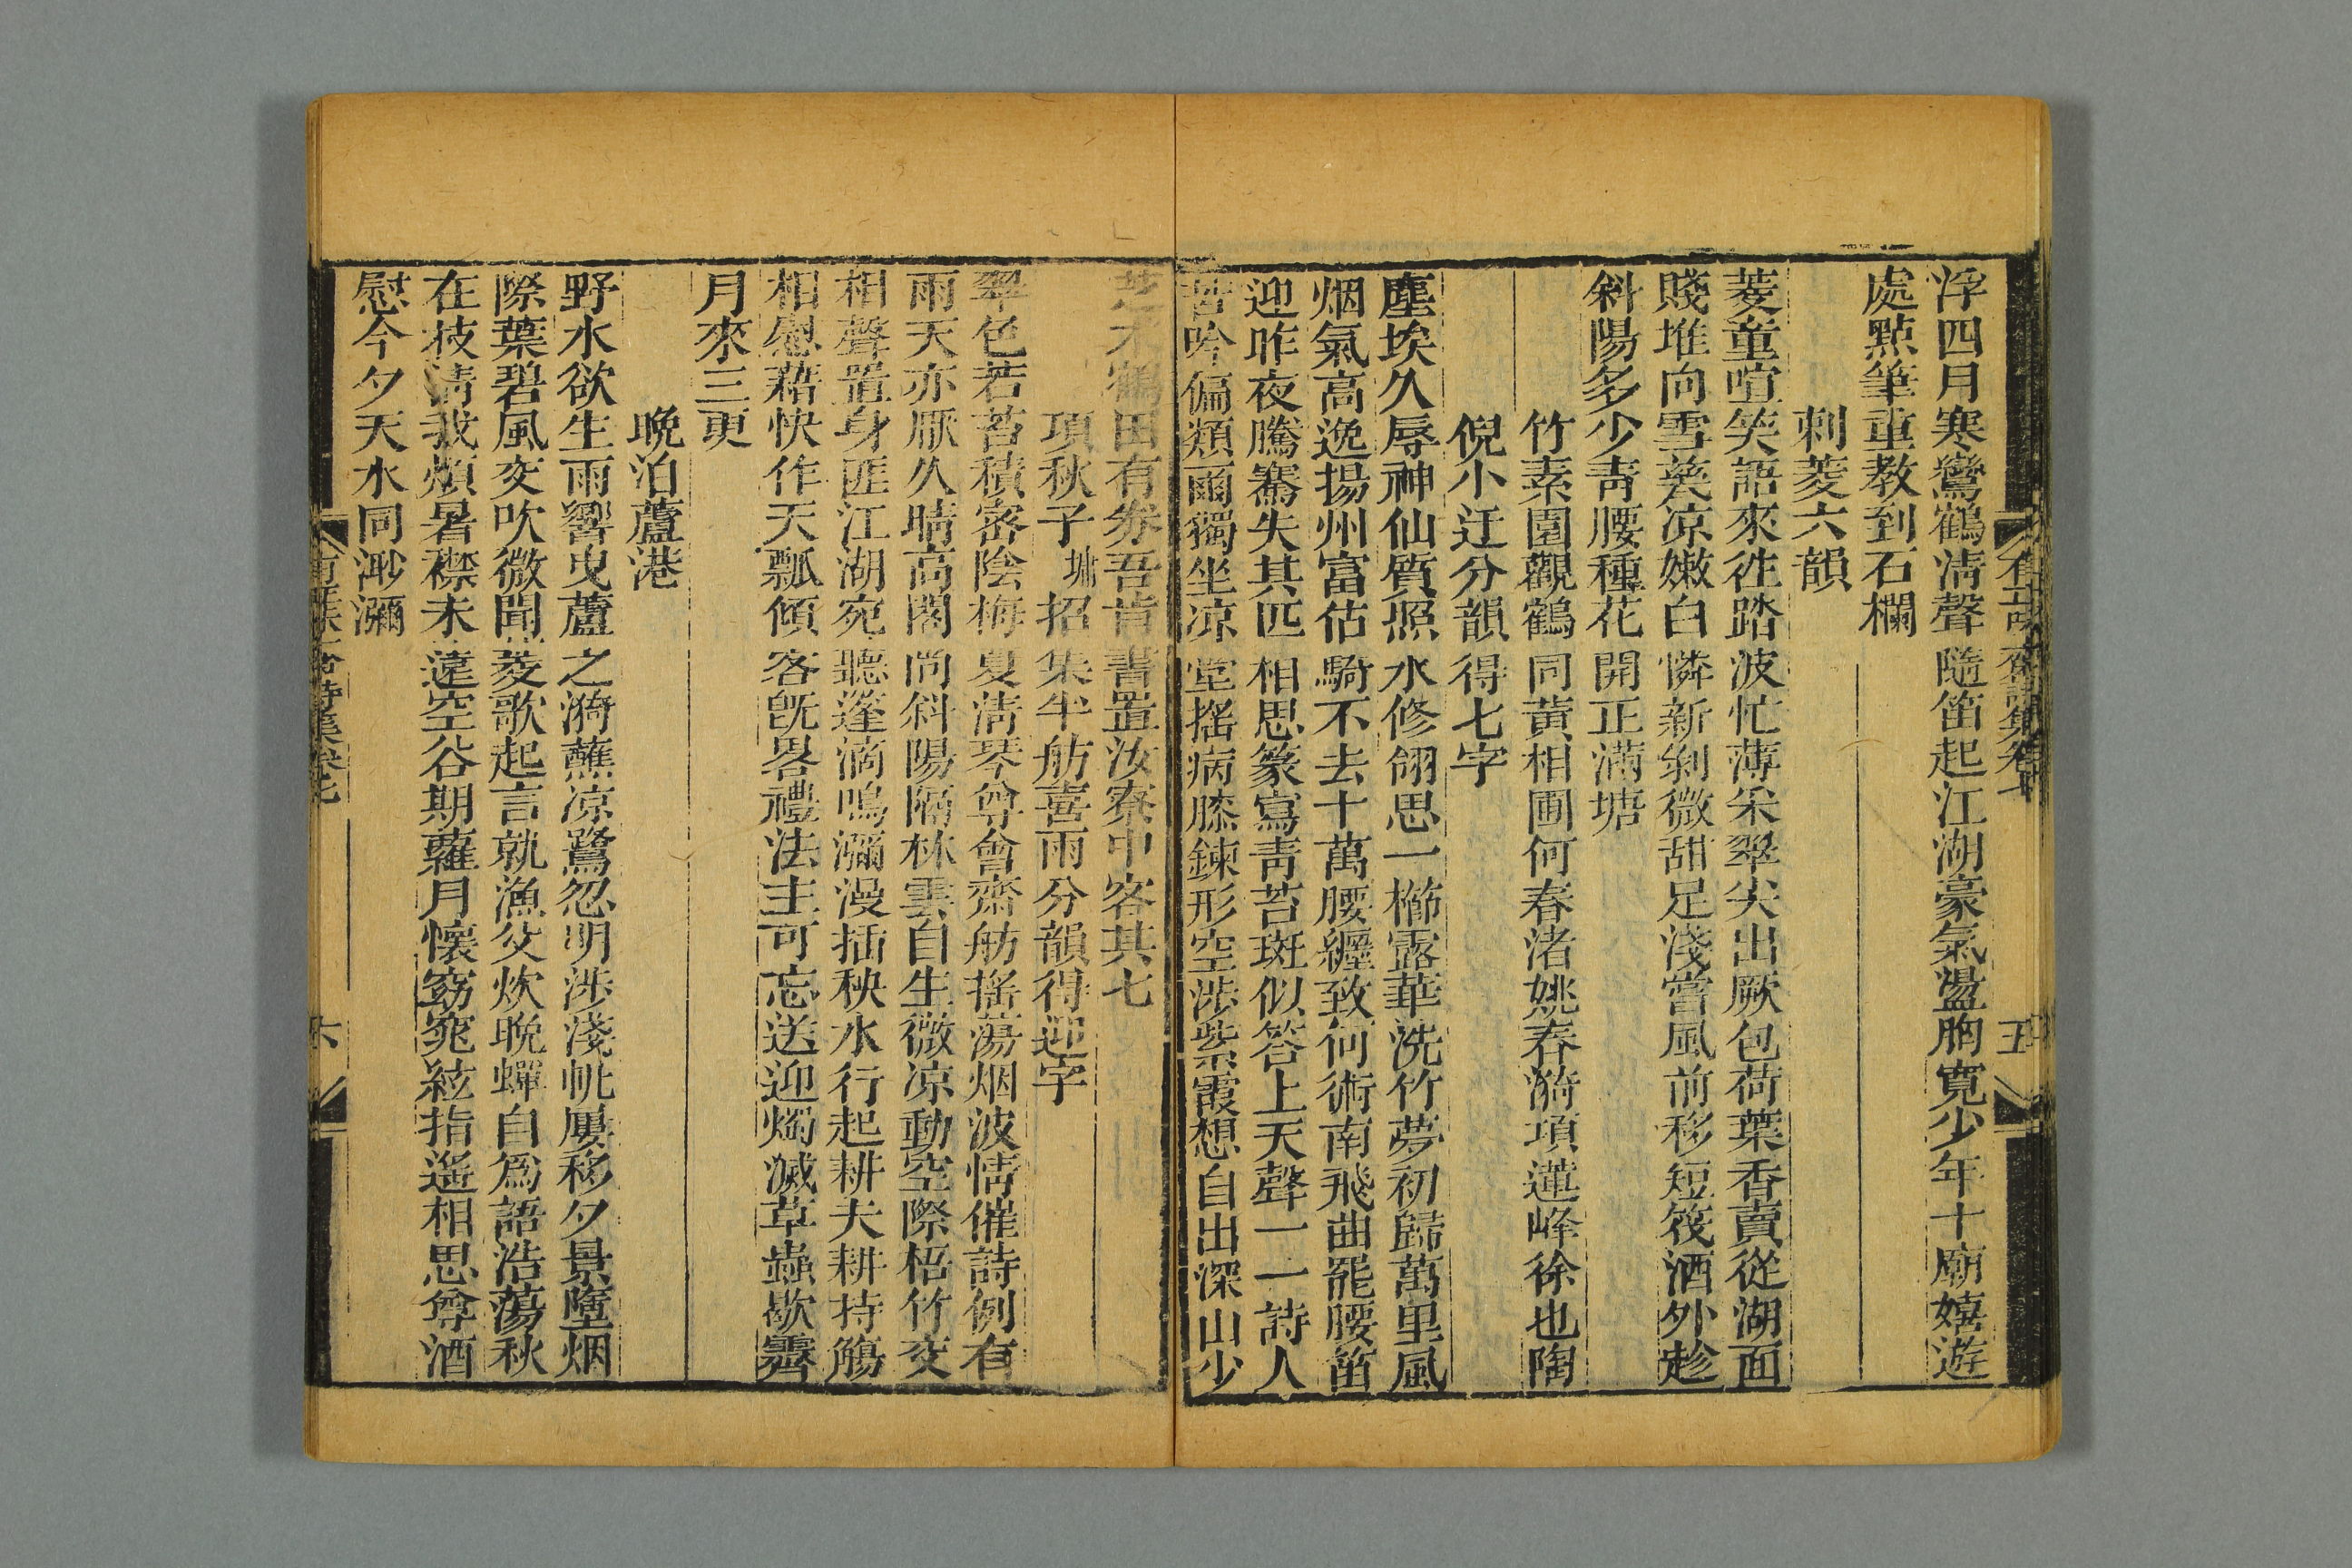 浮四月寒鸞鶴淸聲隨笛起江湖豪氣盪胸寬少年十廟嬉遊
處點筆重教到石欄
刺菱六韻
菱童喧笑語來往踏波忙薄采翠尖出厥包荷葉香賣從湖面
賤堆向雪甆凉嫩白憐新剝微甜足淺嘗風前移短筏酒外趁
斜陽多少靑腰種花開正滿塘
竹素園觀鶴同黃相圃何春渚姚春漪項蓮峰徐也陶
倪小迂分韻得七字
塵埃久辱神仙質照水修翎思一櫛露華洗竹夢初歸萬里風
烟氣高逸揚州富估騎不去十萬腰纏致何術南飛曲罷腰笛
迎昨夜騰騫失其匹相思篆寫靑苔斑似答上天聲一一詩人
苦吟偏類爾獨坐凉堂搖病膝鍊形空涉紫霞想自出深山少
芝朮鶴田有券吾肯書置汝寮中客其七
項秋子墉招集半舫喜雨分韻得迎字
翠色若苔積密陰梅夏淸琴尊會齋舫搖蕩烟波情催詩例有
雨天亦厭久晴高閣尚斜陽隔林雲自生微凉動空際梧竹交
相聲置身匪江湖宛聽蓬滴鳴瀰漫插秧水行起耕夫耕持觴
相慰藉快作天瓢傾客旣畧禮法主可忘送迎燭滅草蟲歇霽
月來三更
晚泊蘆港
野水欲生雨響曳蘆之漪蘸凉鷺忽明涉淺帆屢移夕景墮烟
際葉碧風交吹微聞菱歌起言就漁父炊晚蟬自爲語浩蕩秋
在枝淸我煩暑襟未違空谷期蘿月懷窈窕絃指遙相思尊酒
慰今夕天水同渺瀰
五
六